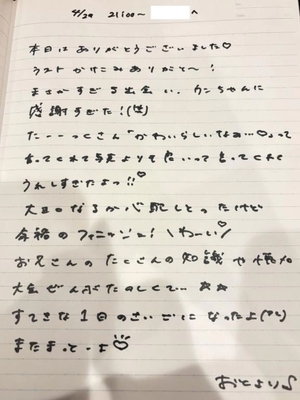 4/29 21:00〜 へ
本日はありがとうございました♡
ラストかけこみありがと〜!
まさかすぎる出会い、ウンちゃんに
感謝すぎた!
た---っくさん「かわいらしいなぁ…♡」って
言ってくれて写真よりも良いって言ってくれて
うれしすぎたよっ!!♡
大丈夫なるか心配しとったけど
余裕のフィニッシュ! \わーい/
お兄さんのたくさんの知識や
大会ぜんぶたのしくて… ☆☆
すてきな1日のさいごになったよ
またまってーよ♡
おとより♪